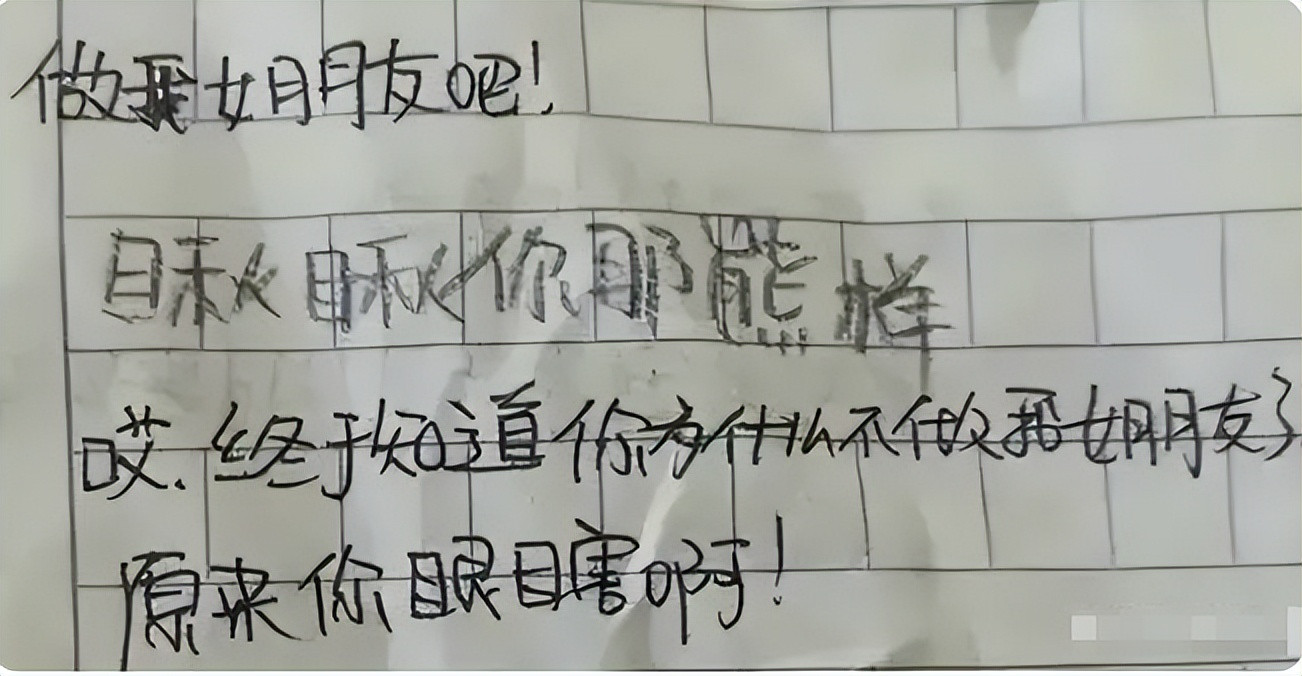 做我女朋友吧!
瞅瞅你那熊样
哎.终于知道你为什么不做我女朋友了
原来你眼瞎啊!